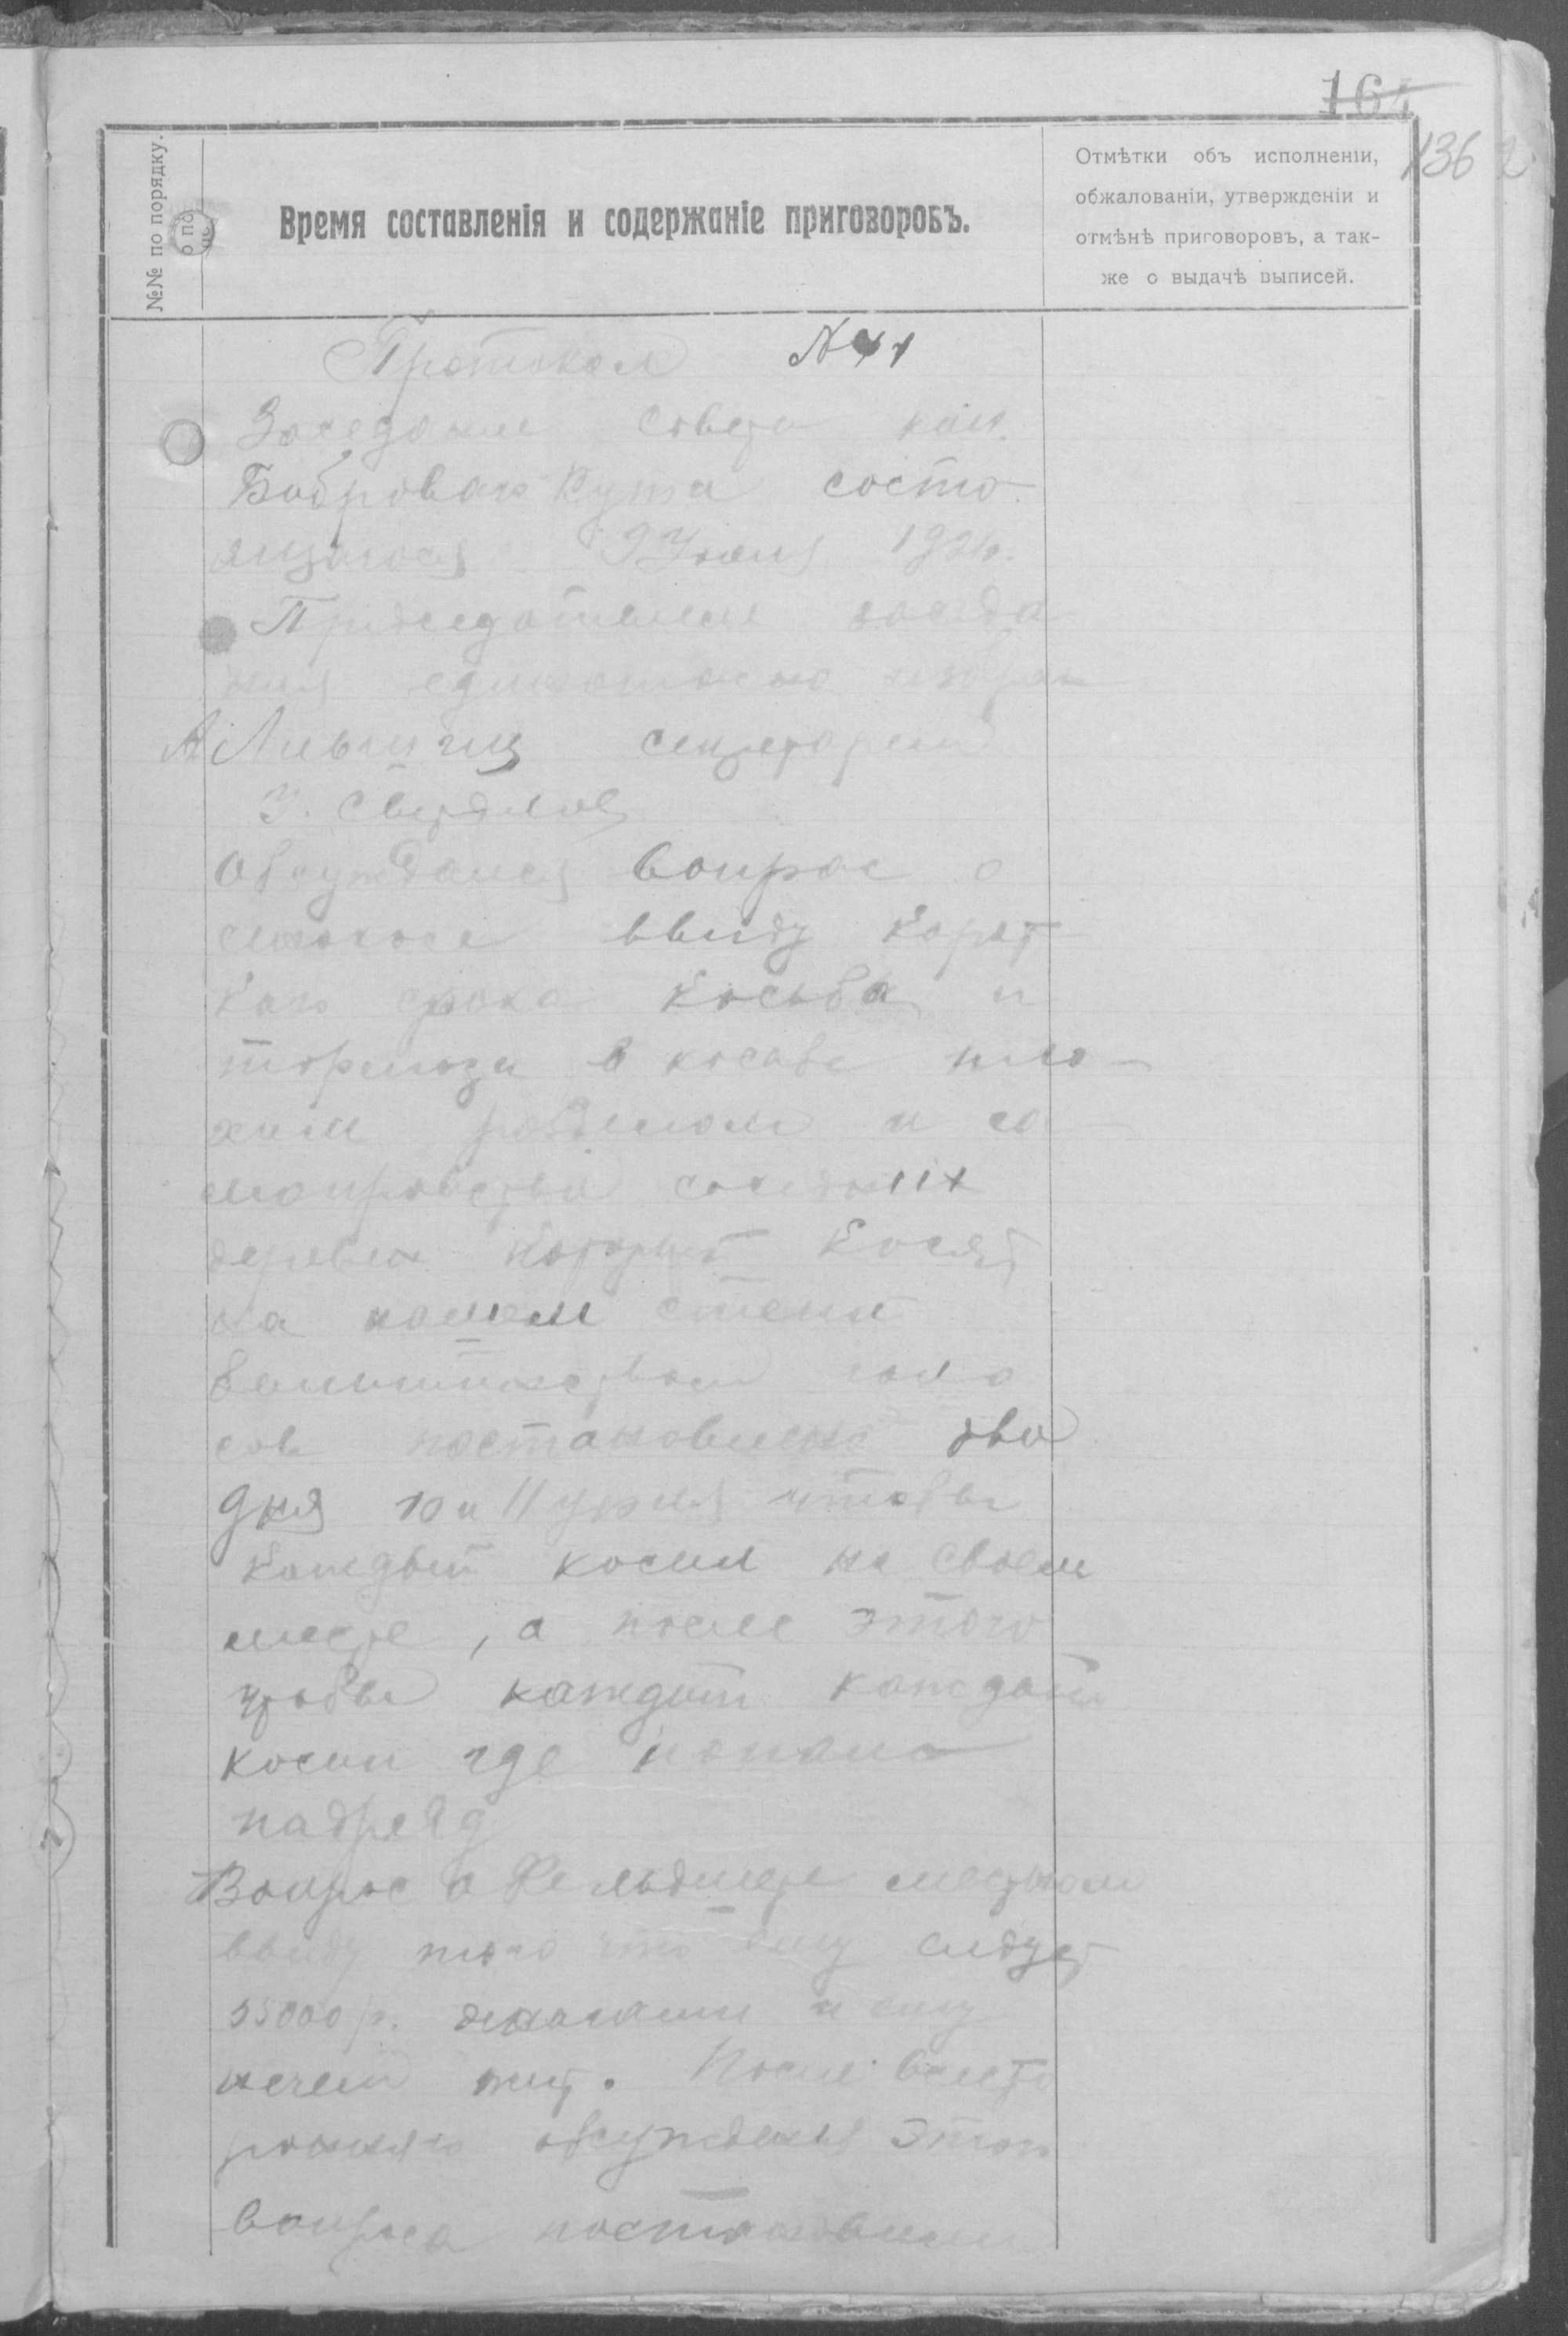 164
136
№№ по порядку.
Время составленія и содержаніе приговоровъ.
Отмѣтки объ исполненіи,
обжалованіи, утвержденіи и
отмѣнѣ приговоровъ, а так-
же о выдачѣ выписей.
Протокол №41
Заседание совета кол.
Бобровый Кута состо
ящагося 9 Июня 192
Председателем заседа
ния единогласно избран
секретарем
И. Свердлов
Обсуждался вопрос о
сенокосе ввиду корот
каго срока косьба и
тормоза в косабе пло-
хим разделом и са-
моуправства соседних
деревен которые косят
на нашем степи
Большинством голо
сов постановлено два
дня 10 и 11 июня чтобы
каждый косил на своем
месте, а после этого
чтобы каждый каждый
косил где попало
падряд
Вопрос о Фельдшере местном
ввиду того что ему следует
35000 р. деньгами и ему
нечем жит. После всест
ронняго обсуждения этого
вопроса постановили